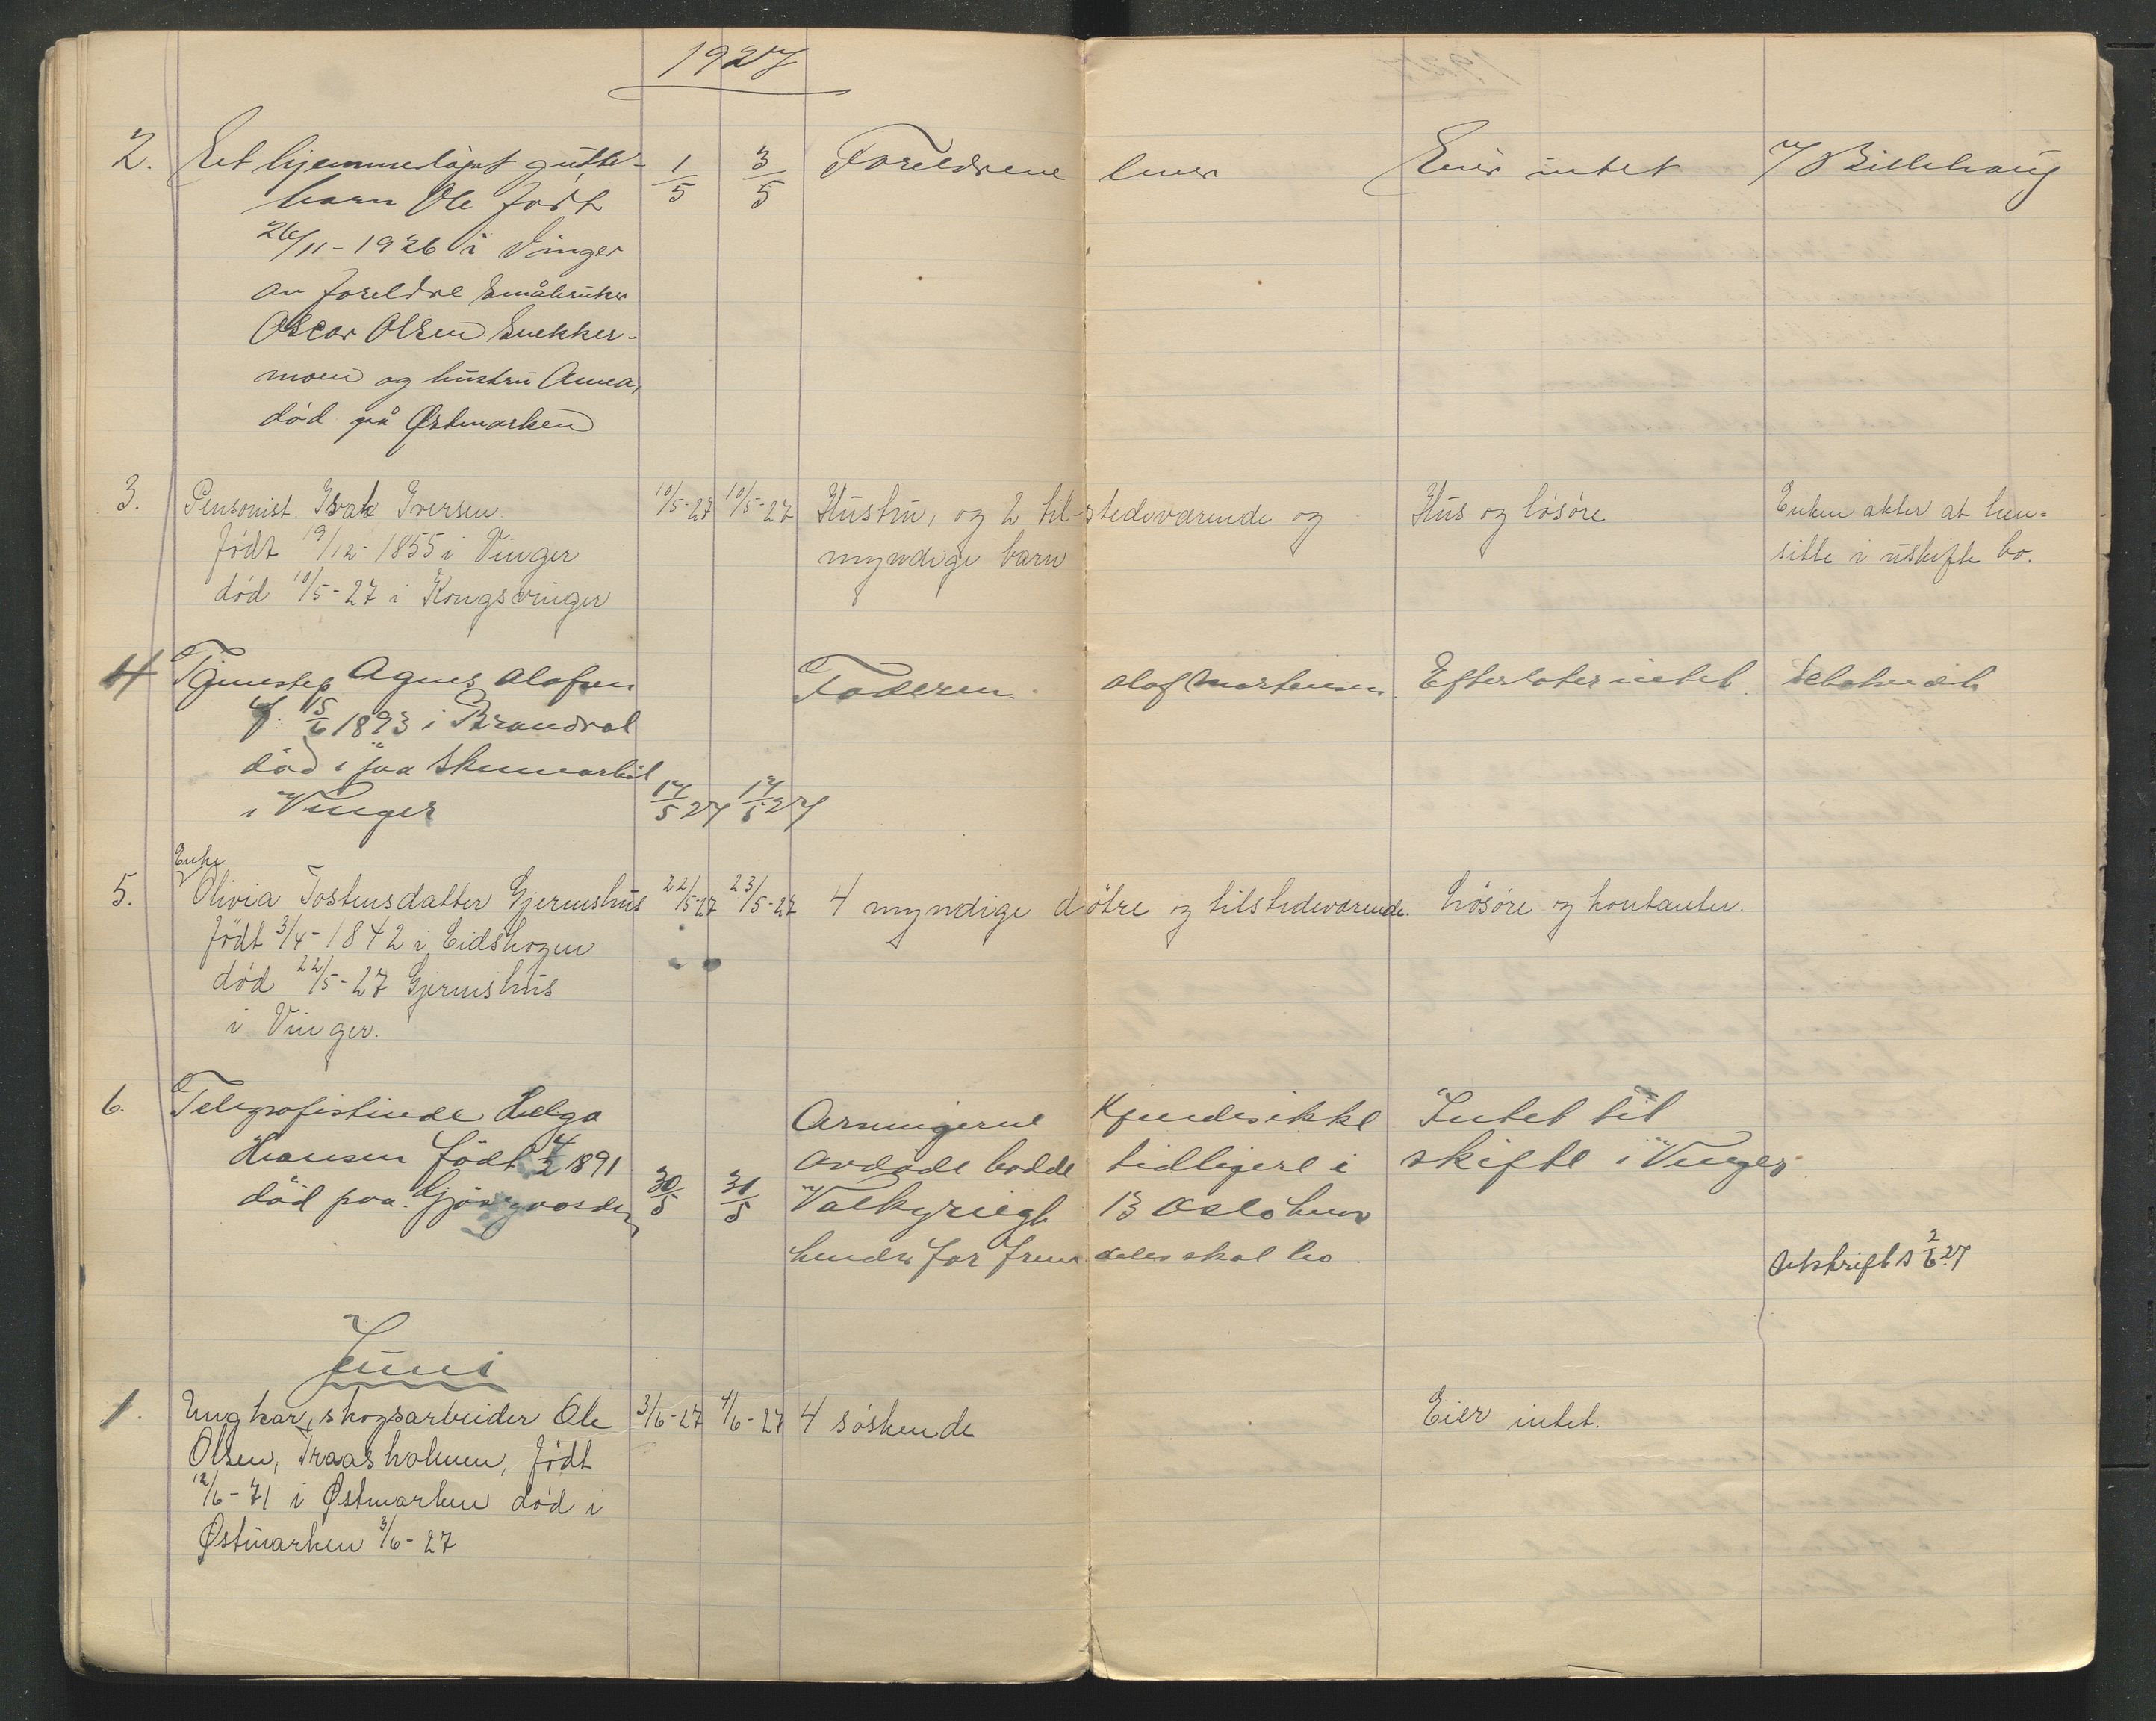 1927
2. Eet hjemmedöpt gutte- 1/5 3/5 Foreldrene lever Eier intet v/ Billehaug
barn Ole født
26/11-1926 i Vinger
av foreldre Småbruker
Oscar Olsen Snekker-
moen og hustru Anna,
död på Østmarken
3. Pensonist Isak Iversen 10/5-27 10/5-27 Hustru, og 2 til-stedeværende og Hus og lösöre Enken akter at hen-
født 19/12-1855 i Vinger myndige barn sitte i uskifte bo.
död 10/5-27 i Kongsvinger
4 Tjenestep Agnes Olafsen Faderen Olaf Martinsen Efterlater intet
f. 15/6 1893 i Brandval
död i paa Skinnarböl
i Vinger 17/5 27 17/5 27
Enke
5. Olivia Tostensdatter Gjermshus 22/5-27 23/5-27 4 myndige dötre og tilstedeværende. Lösöre og kontanter.
født 3/4-1842 i Eidskogen
död 22/5-27 Gjermshus
i Vinger.
6. Telegrafistinde Helga Arvingerne kjendes ikke Intet til
Hansen født 4/2 1891 avdöde bodde tidligere i skifte i Vinger
död paa 30/5 31/5 Valkyriegt 13 Oslo hvor
hendes for skal bo
Utskrift s 2/6 27
Juni
1. Ungkar, skogsarbeider Ole 3/6-27 4/6-27 4 söskende Eier intet.
Olsen, Traasholmen, født
12/6-71 i Østmarken död i
Østmarken 3/6-27